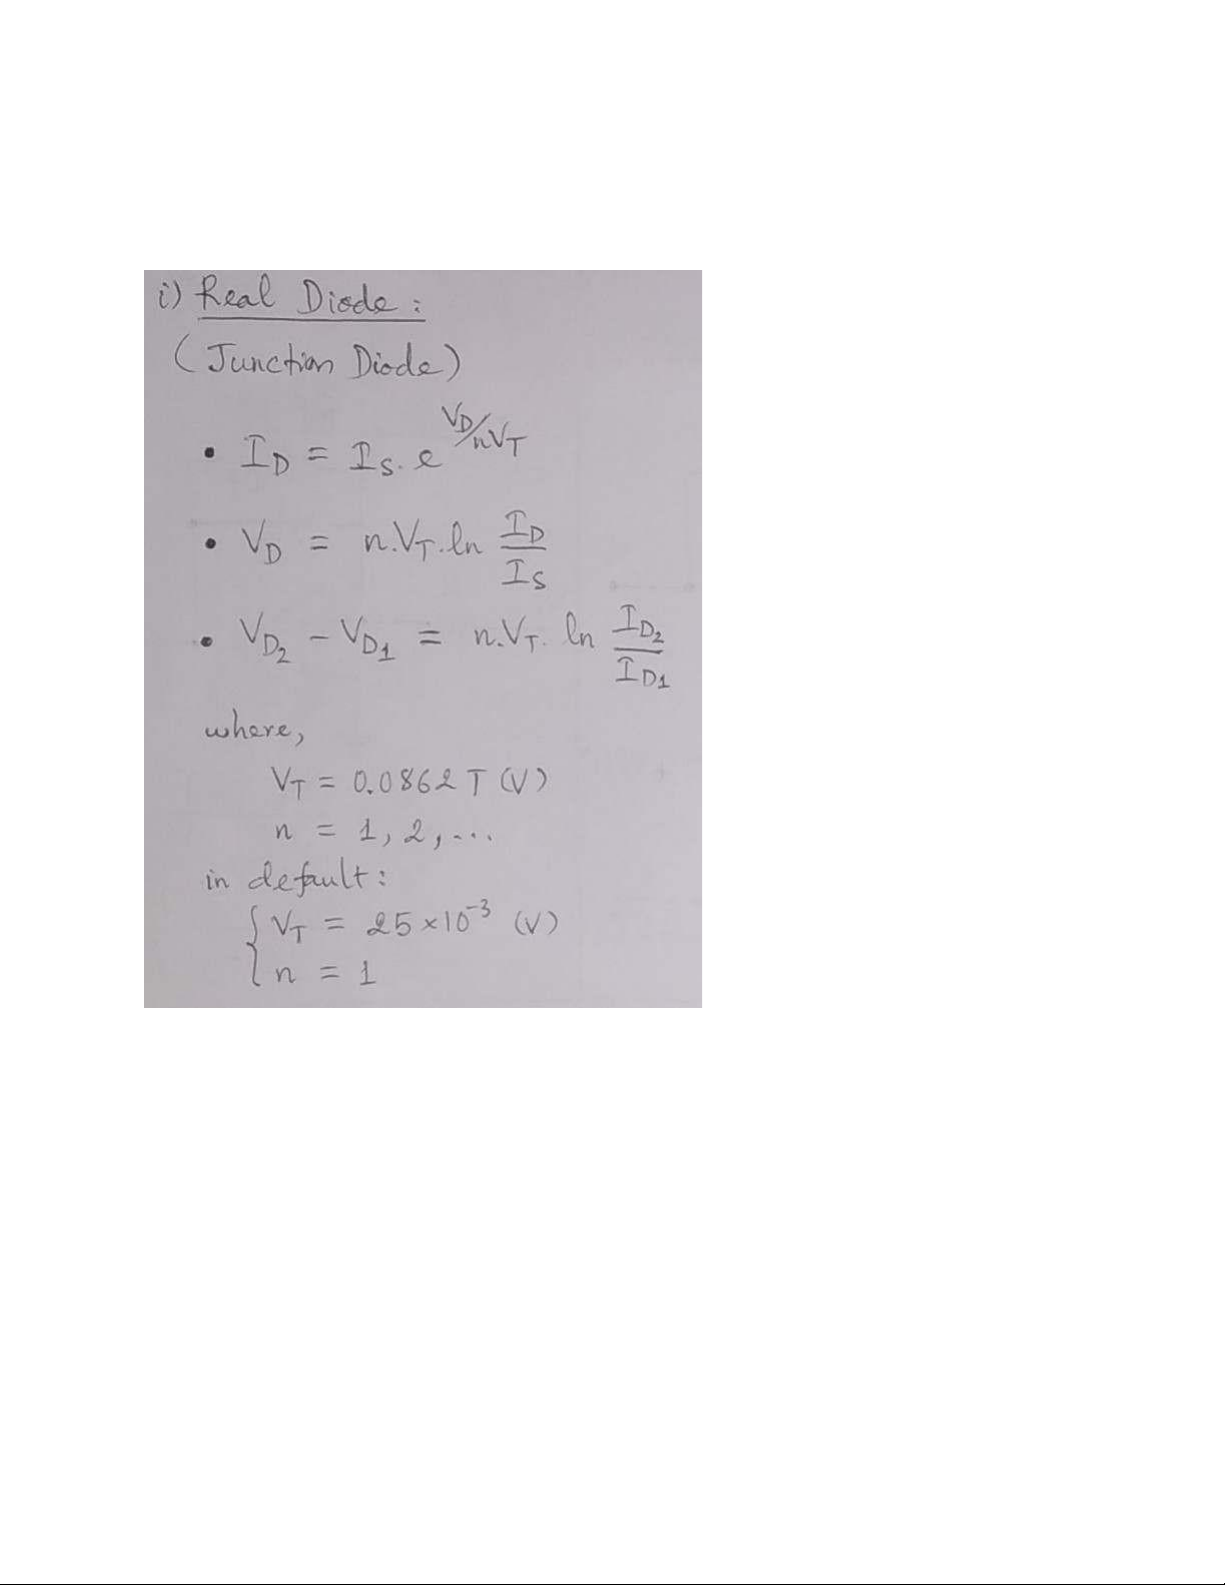 i) Real Diode :
(Junction Diode)
• I_D = I_S. e^{V_D/nV_T}
• V_D = n.V_T.ln I_D/I_S
• V_{D2} - V_{D1} = n.V_T. ln I_{D2}/I_{D1}
where,
V_T = 0.0862 T (V)
n = 1, 2, ...
in default :
{ V_T = 25 ×10^{-3} (V)
n = 1